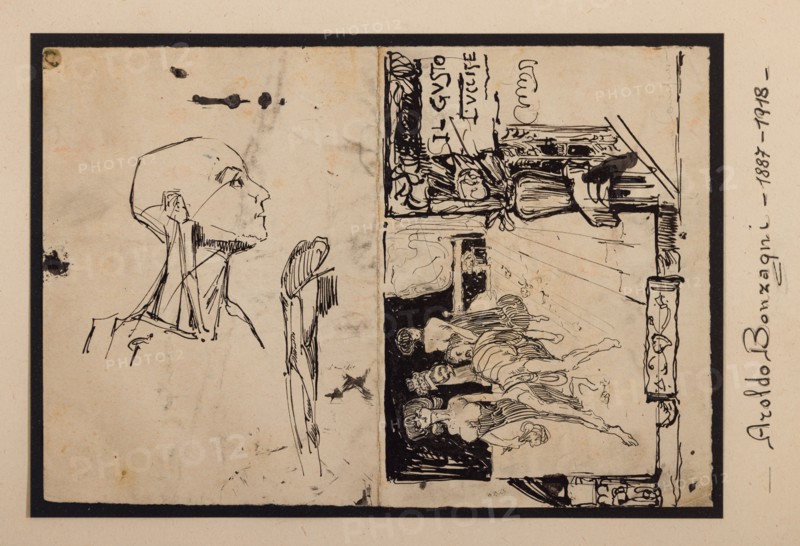 IL GUSTO
L'UCCIDE
— Aroldo Bonzagni — 1887 — 1918 —
PHOTO12